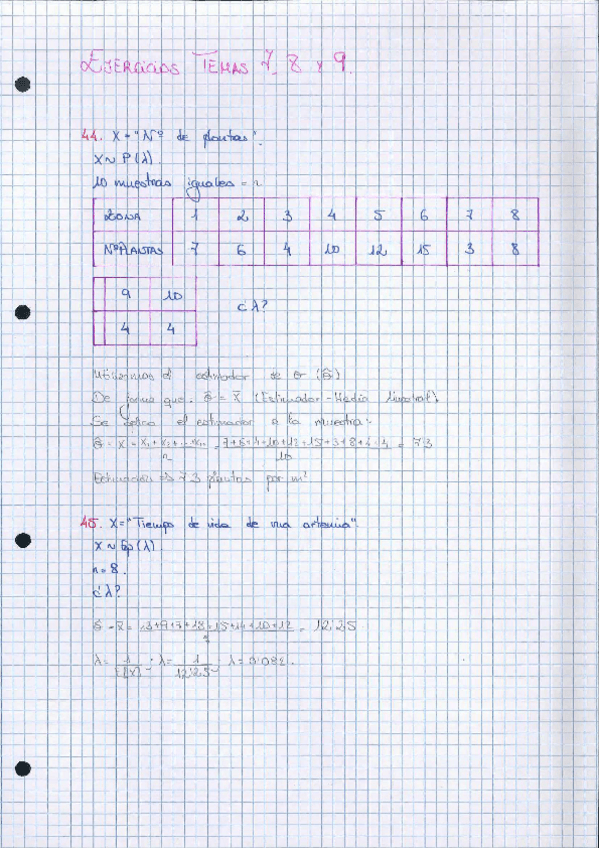 EJERCICIOS TEMAS 7, 8 Y 9.
44. X = "Nº de plantas".
X ~ P(λ).
10 muestras iguales = n
ZONA 1 2 3 4 5 6 7 8
Nº PLANTAS 7 6 4 10 12 15 3 8
9 10
4 4
¿λ?
Utilizamos el estimador de θ (θ̂)
De forma que: θ̂ = x̄ (Estimador - Media Muestral).
Se aplica el estimador a la muestra:
θ̂ = x̄ = x₁ + x₂ + ... xₙ / n = 7+6+4+10+12+15+3+8+4+4 / 10 = 7'3
Estimación ⇒ 7'3 plantas por m²
45. X = "Tiempo de vida de una artemia".
X ~ Exp(λ)
n = 8.
¿λ?
+9+7+18+15+14+10+12 = 12'25
λ = 1 / E[X] ; λ = 1 / 12'25 ; λ = 0'082.